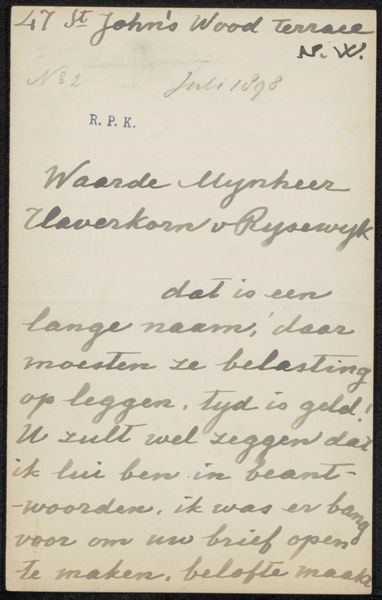 47 St John's Wood Terrace
N. W.
No 2
Juli 1898
R. P. K.
Waarde Mynheer
Haverkorn v Rysewyk
dat is een
lange naam, daar
moesten ze belasting
op leggen. tyd is geld!
U zult wel zeggen dat
ik lui ben in beant-
-woorden, ik was er bang
voor om uw brief open
te maken. belofte maakt